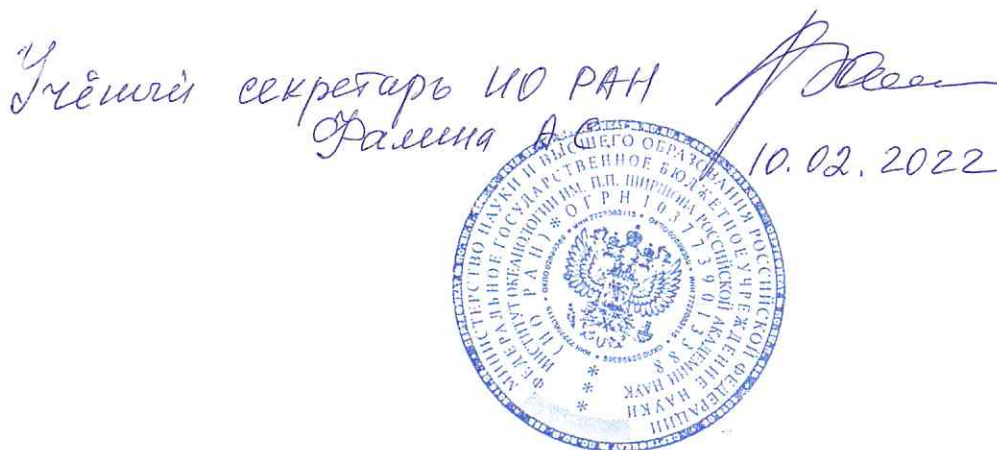 Учёный секретарь ИО РАН
Фалина А.С
10.02.2022
МИНИСТЕРСТВО НАУКИ И ВЫСШЕГО ОБРАЗОВАНИЯ РОССИЙСКОЙ ФЕДЕРАЦИИ
ФЕДЕРАЛЬНОЕ ГОСУДАРСТВЕННОЕ БЮДЖЕТНОЕ УЧРЕЖДЕНИЕ НАУКИ
ИНСТИТУТ ОКЕАНОЛОГИИ ИМ. П.П. ШИРШОВА РОССИЙСКОЙ АКАДЕМИИ НАУК
(ИО РАН) * ОГРН 1037739013388
* * *